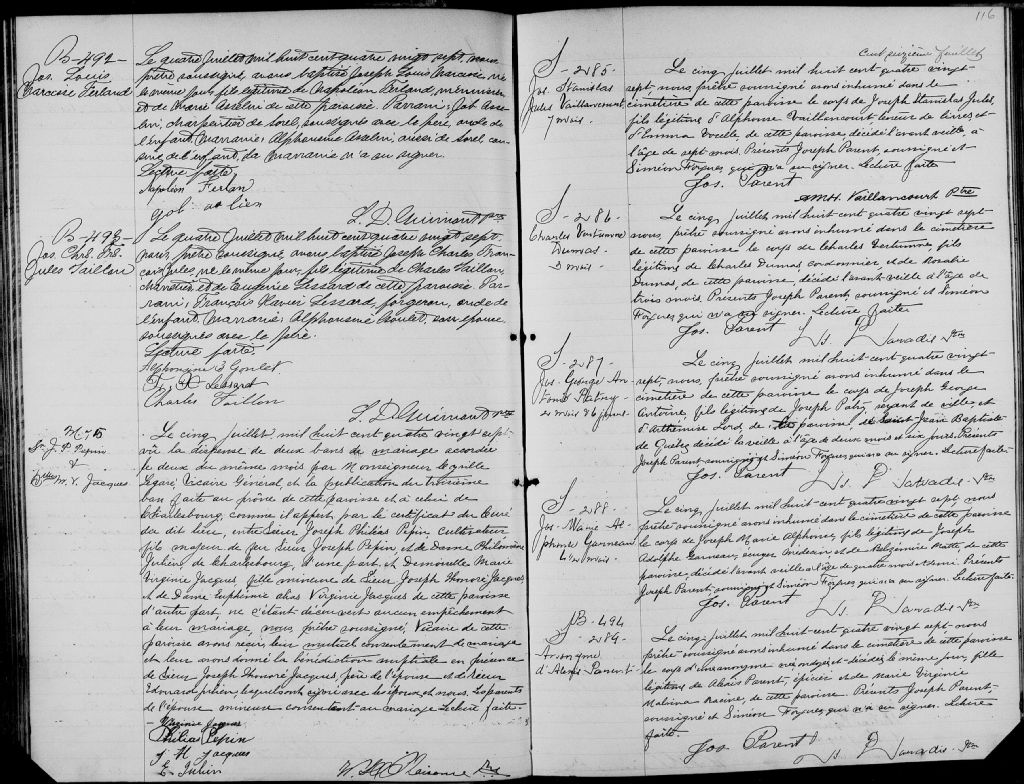 B-492-
Jos. Louis
Narcisse Ferland
Le quatre Juillet mil huit cent quatre vingt sept, nous
prêtre soussigné, avons baptisé Joseph Louis Narcisse, né
le même jour, fils légitime de Napoléon Ferland, menuisier
et de Marie Asselin de cette paroisse. Parrain: Job Asse
lin, charpentier de Sorel, soussigné avec le père, oncle de
l'enfant, Marraine: Alphonsine Asselin, aussi de Sorel, cou
sine de l'enfant. La marraine n'a su signer.
Lecture faite.
Napoléon Ferlan
L. D. Guimont ptre
B-493-
Jos. Chrs. Frs.
Jules Taillon
Le quatre Juillet mil huit cent quatre vingt sept,
nous, prêtre soussigné, avons baptisé Joseph Charles Fran-
çois Jules, né le même jour, fils légitime de Charles Taillon,
et de Eugénie Lessard de cette paroisse. Par-
rain: François Xavier Lessard, forgeron, oncle de
l'enfant, Marraine: Alphonsine Goulet, son épouse
soussignés avec le père.
Lecture faite.
Alphonsine Goulet
F. X Lessard
Charles Taillon
L. D. Guimont ptre
M 75
Sr. J. P. Pepin
&
Dlle M. V. Jacques
Le cinq juillet mil huit cent quatre vingt sept
vu la dispense de deux bans de mariage accordée
le deux du même mois par Monseigneur Cyrille
Légaré Vicaire Général et la publication du troisième
ban faite au prône de cette paroisse et à celui de
Charlesbourg, comme il appert par le certificat du Curé
du dit lieu, entre Sieur Joseph Philéas Pepin, cultivateur
fils majeur de feu Sieur Joseph Pepin, et de Dame Philomène
Julien, de Charlesbourg, d'une part, et Demoiselle Marie
Virginie Jacques, fille mineure de Sieur Joseph Honoré Jacques
et de Dame Euphémie alias Virginie Jacques de cette paroisse
d'autre part, ne s'étant découvert aucun empêchement
à leur mariage, nous, prêtre soussigné, Vicaire de cette
paroisse avons reçu leur mutuel consentement de mariage
et leur avons donné la bénédiction nuptiale en présence
de Sieur Joseph Honoré Jacques, père de l'épouse et de Sieur
Edouard Julien, lesquels ont signé avec les époux et nous. Les parents
de l'épouse mineure consentent au mariage Lecture faite.
Virginie Jacques
Philias Pepin
J. H. Jacques
E. Julien
116
Cent seizième feuillet
S-285.
Jos. Stanislas
Jules Vaillancourt
7 mois.
Le cinq juillet mil huit cent quatre vingt-
sept, nous prêtre soussigné avons inhumé dans le
cimetière de cette paroisse le corps de Joseph Stanislas Jules,
fils légitime d'Alphonse Vaillancourt teneur de livres et
d'Emma Vocelle de cette paroisse, décédé l'avant veille, à
l'âge de sept mois. Présents Joseph Parent, soussigné et
Siméon Forgues qui n'a su signer. Lecture faite
Jos. Parent
Vaillancourt Ptre
S-286-
Charles Vertumne
Dumas
3 mois.
Le cinq juillet mil huit cent quatre vingt sept
nous, prêtre soussigné avons inhumé dans le cimetière
de cette paroisse le corps de Charles Vertumne, fils
légitime de Charles Dumas cordonnier, et de Rosalie
Dumas, de cette paroisse, décédé l'avant veille à l'âge de
trois mois. Présents Joseph Parent, soussigné et Siméon
Forgues qui n'a su signer. Lecture faite
Jos. Parent
Ls. P. Paradis Ptre
S-287-
Jos. George An
toine Patry
2 mois & 6 jours
Le cinq juillet mil huit cent quatre vingt-
sept, nous, prêtre soussigné avons inhumé dans le
cimetière de cette paroisse le corps de Joseph George
Antoine, fils légitime de Joseph Patry, de ville, et
d'Arthémise Lord, de paroisse, de Saint Jean Baptiste
de Québec décédé la veille à l'âge de deux mois et six jours. Présents
Joseph Parent soussigné et Siméon Forgues qui n'a su signer. Lecture faite-
Jos. Parent
Ls. P. Paradis Ptre
S-288-
Jos. Marie Al-
phonse Garneau
4 1/2 mois.
Le cinq, juillet mil huit-cent quatre vingt sept nous
prêtre soussigné avons inhumé dans le cimetière de cette paroisse
le corps de Joseph Marie Alphonse, fils légitime de Joseph
Adolphe Garneau, écuyer Médecin et de Malte, de cette
paroisse, décédé l'avant veille à l'âge de quatre mois et demi. Présents
Joseph Parent, soussigné et Siméon Forgues qui n'a su signer. Lecture faite.
Jos. Parent
Ls. P. Paradis Ptre
B-494
S-289-
Anonyme
d'Alexis Parent
Le cinq juillet mil huit-cent quatre vingt sept-nous
prêtre soussigné avons inhumé dans le cimetière de cette paroisse
le corps d'un anonyme né, ondoyé et décédé le même jour, fille
légitime de Alexis Parent, épicier et de Marie Virginie
Malvina Racine, de cette paroisse. Présents Joseph Parent,
soussigné et Siméon Forgues, qui n'a su signer. Lecture
faite.
Jos Parent
Ls. P. Paradis Ptre